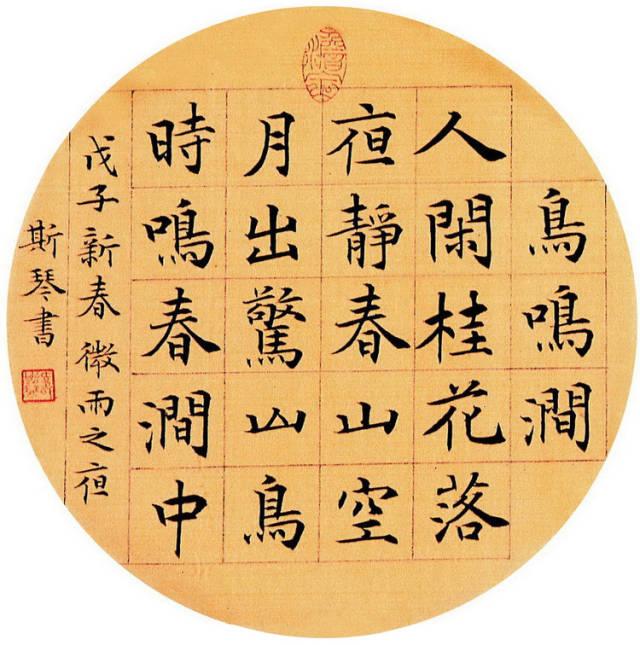 鳥鳴澗
人閑桂花落
夜靜春山空
月出驚山鳥
時鳴春澗中
戊子新春微雨之夜
斯琴書